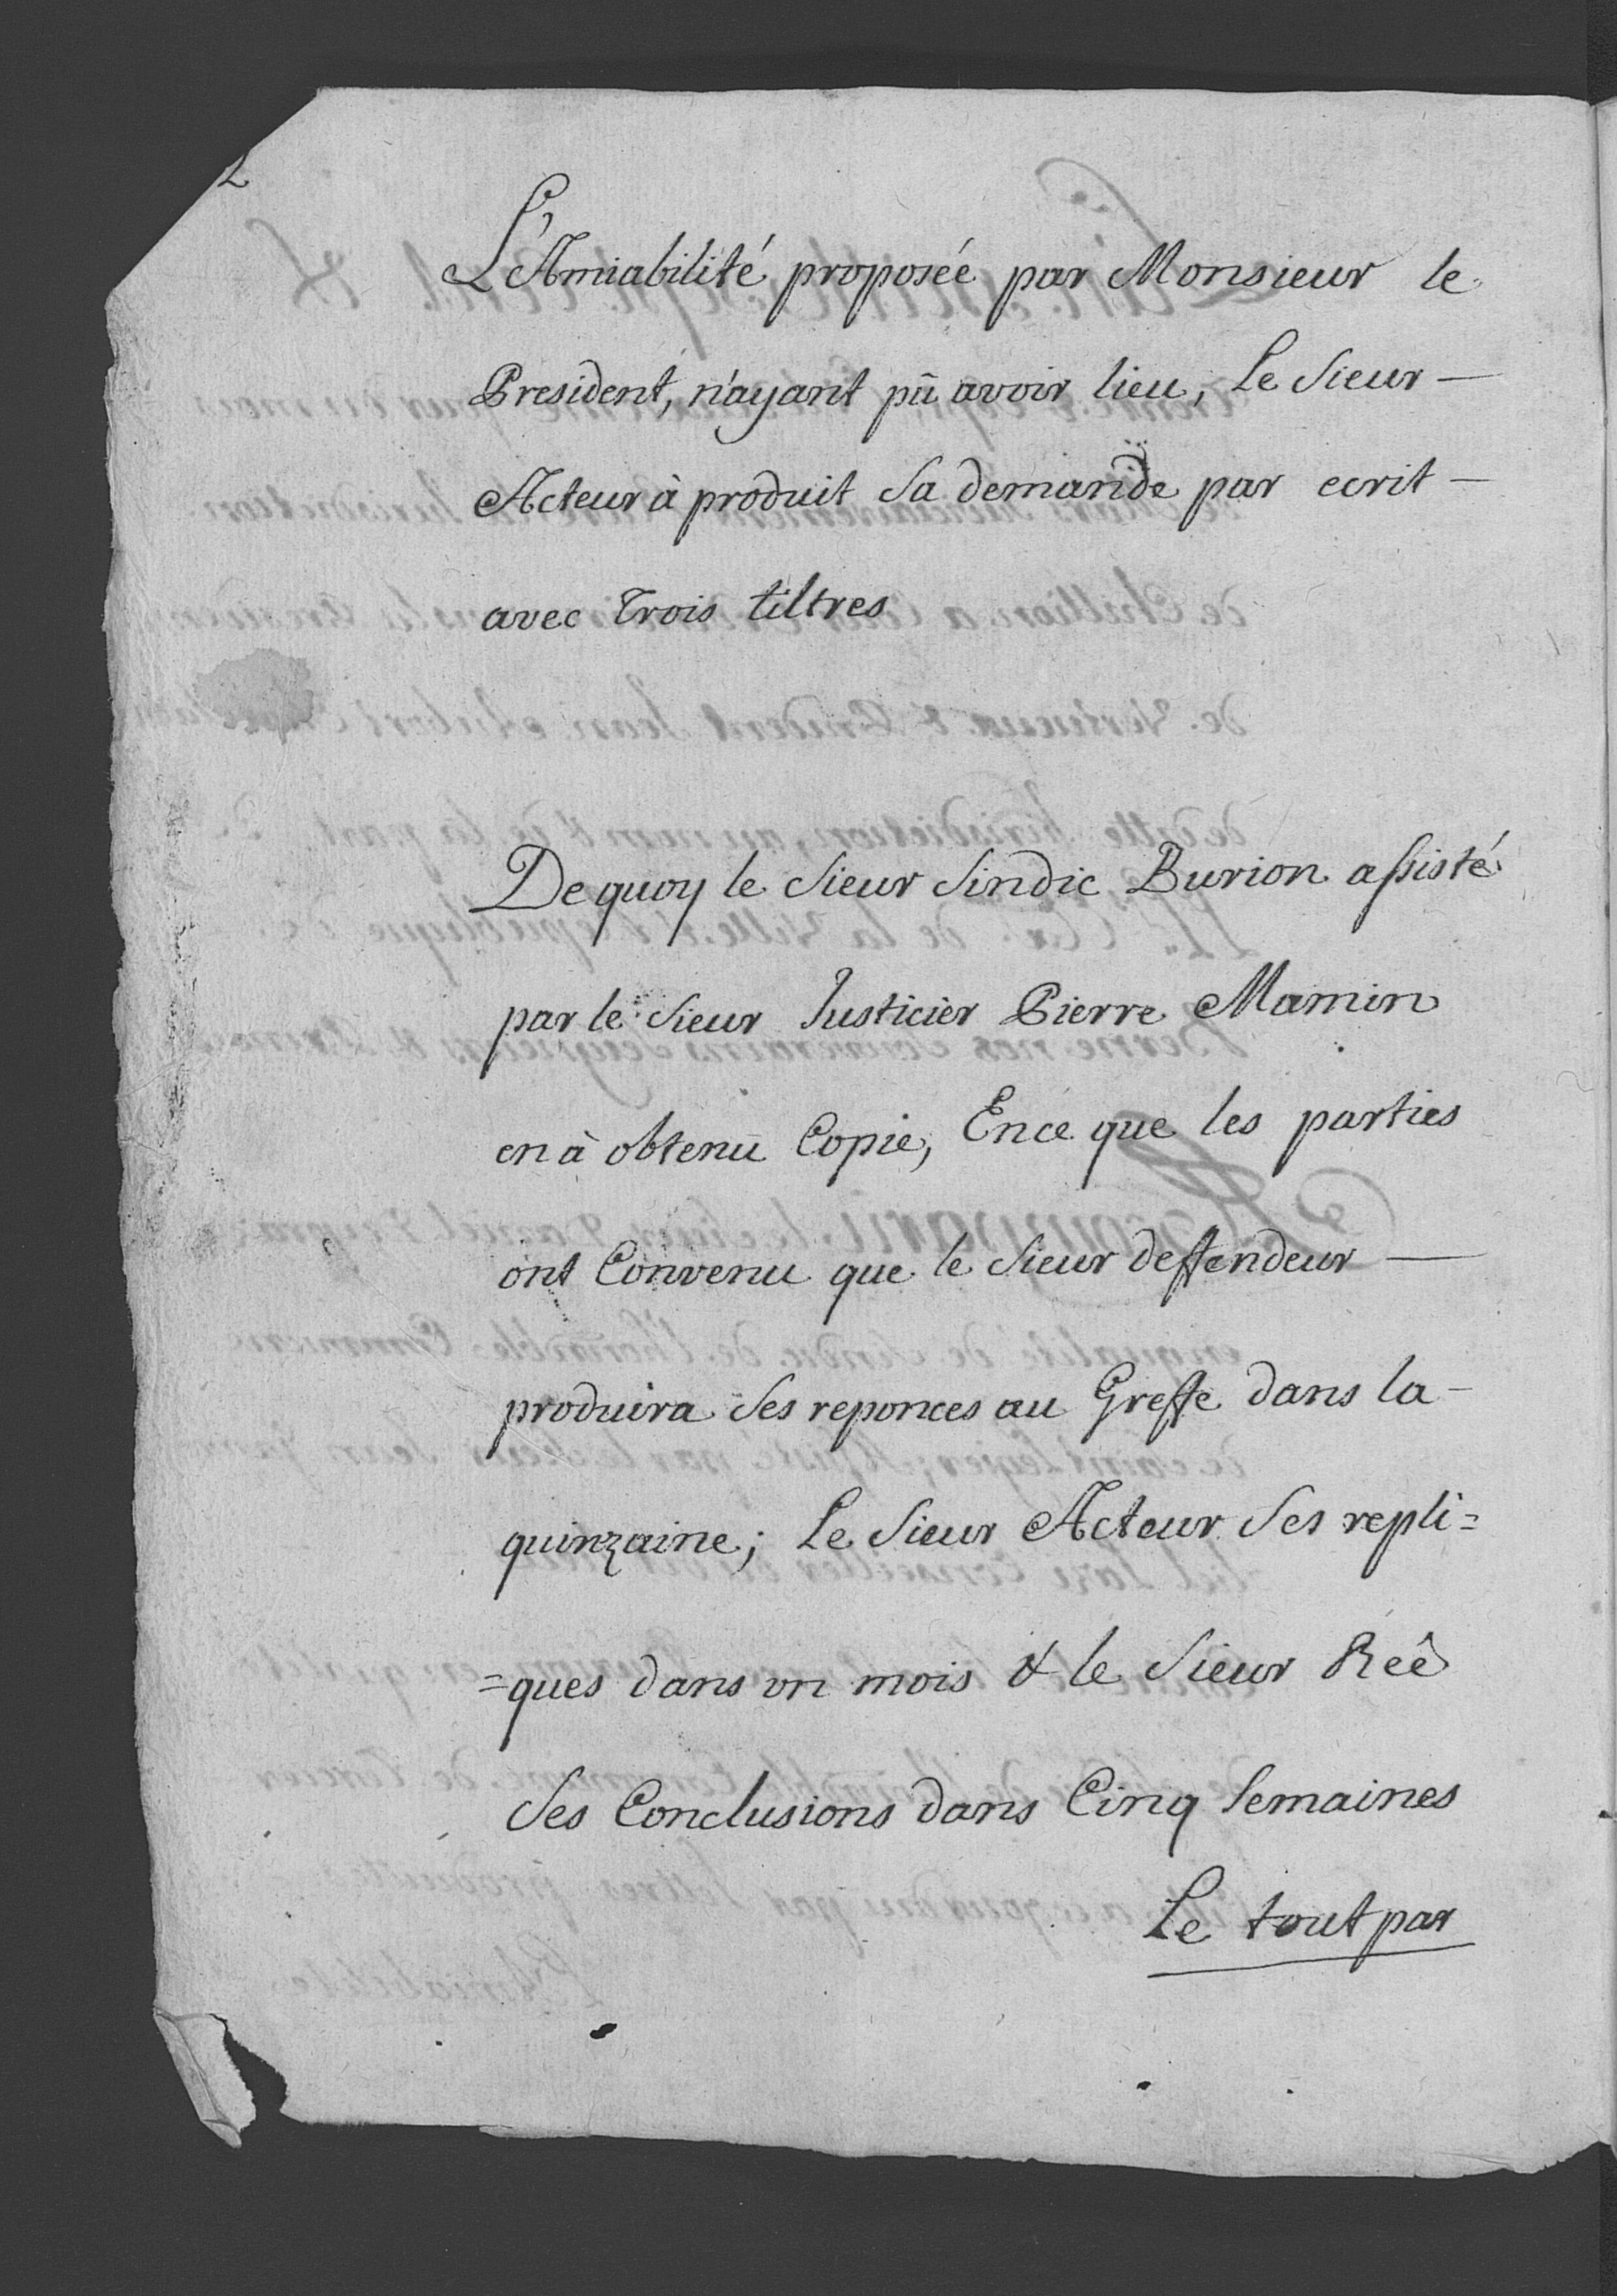 2
L'Amiabilité proposée par Monsieur le
President, n'ayant pû avoir lieu, Le Sieur —
Acteur à produit Sa demande par ecrit —
avec Trois tiltres
De quoy le Sieur Sindic Burion assisté
par le Sieur Justicier Pierre Mamin
en à obtenu Copie, En ce que les parties
ont Convenu que le Sieur deffendeur —
produira Ses reponces au Greffe dans la —
quinzaine; Le Sieur Acteur Ses repli=
=ques dans un mois & le Sieur Réê
Ses Conclusions dans Cinq Semaines
Le tout par